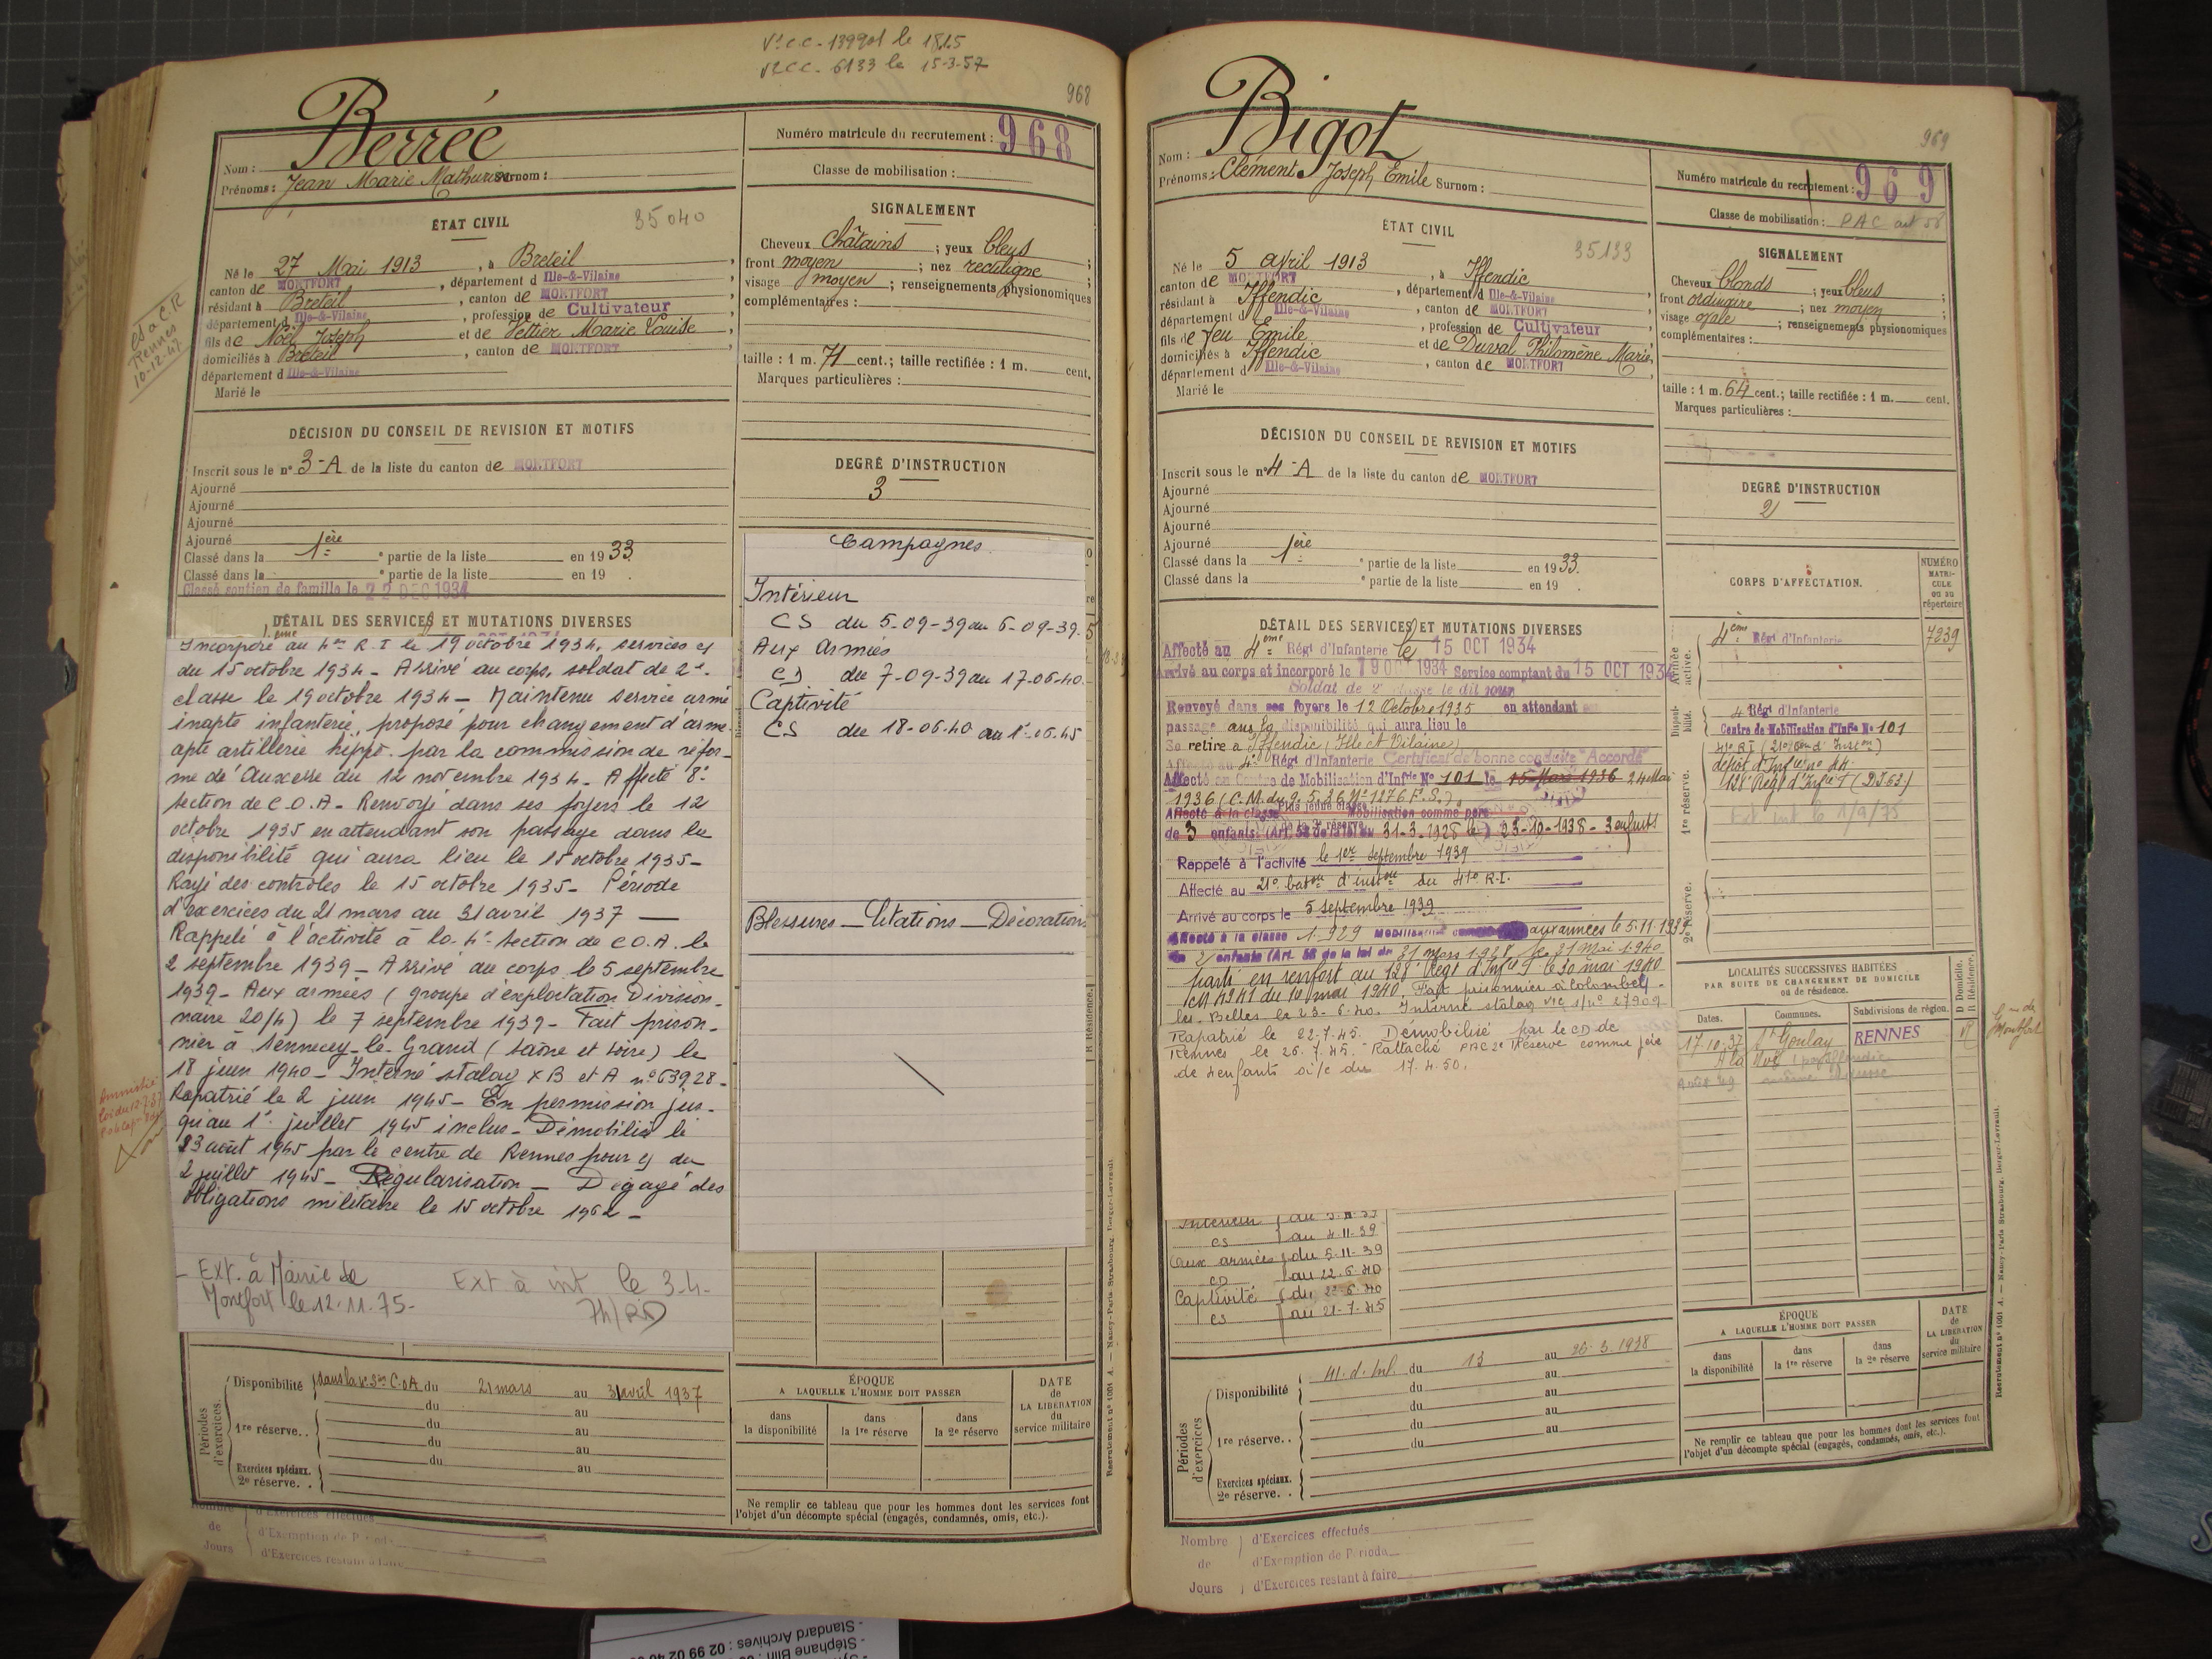 Vt C.C. 139901 le 18.1.5
Vt C.C. 6133 le 15-3-57
968
Nom : Berrée
Prénoms : Jean Marie Mathurin Surnom :
Numéro matricule du recrutement : 968
Classe de mobilisation :
ÉTAT CIVIL
35040
Né le 27 Mai 1913, à Breteil,
canton de MONTFORT, département d Ille-&-Vilaine
résidant à Breteil, canton de MONTFORT
département d Ille-&-Vilaine, profession de Cultivateur
fils de Noël Joseph et de Vettier Marie Louise,
domiciliés à Breteil, canton de MONTFORT
département d Ille-&-Vilaine
Marié le
SIGNALEMENT
Cheveux châtains ; yeux bleus ;
front moyen ; nez rectiligne ;
visage moyen ; renseignements physionomiques
complémentaires :
taille : 1 m. 71 cent.; taille rectifiée : 1 m. cent.
Marques particulières :
Cs à C.R
Rennes
10-12-47
DÉCISION DU CONSEIL DE REVISION ET MOTIFS
Inscrit sous le n° 3-A de la liste du canton de MONTFORT
Ajourné
Ajourné
Ajourné
Ajourné
Classé dans la 1ère e partie de la liste en 1933.
Classé dans la e partie de la liste en 19 .
Classé soutien de famille le 22 DEC 1934
DEGRÉ D'INSTRUCTION
3
DÉTAIL DES SERVICES ET MUTATIONS DIVERSES
Incorporé au 4me R.I le 19 octobre 1934, services cy
du 15 octobre 1934 - Arrivé au corps, soldat de 2e
classe le 19 octobre 1934 - Maintenu service armé
inapte infanterie, proposé pour changement d'arme
apte artillerie hippo. par la commission de réfor-
me de Auxerre du 12 novembre 1934 - Affecté 8e
section de C.O.A - Renvoyé dans ses foyers le 12
octobre 1935 en attendant son passage dans la
disponibilité qui aura lieu le 15 octobre 1935 -
Rayé des contrôles le 15 octobre 1935 - Période
d'exercices du 21 mars au 31 avril 1937 —
Rappelé à l'activité à la 4e section de C.O.A. le
2 septembre 1939 - Arrivé au corps le 5 septembre
1939 - Aux armées (groupe d'exploitation Division-
naire 20/4) le 7 septembre 1939 - Fait prison-
nier à Sennecey-le-Grand (Saône et Loire) le
18 juin 1940 - Interné stalag X B et A n° 63928 -
Rapatrié le 2 juin 1945 - En permission jus-
qu'au 1er juillet 1945 inclus - Démobilisé le
23 août 1945 par le centre de Rennes pour cy du
2 juillet 1945 - Régularisation - Dégagé des
obligations militaire le 15 octobre 1962 -
- Ext. à Mairie de
Montfort le 12.11.75 -
Ext à int le 3-4-
74/RD
Campagnes
Intérieur
CS du 5-09-39 au 6-09-39.
Aux Armées
CD du 7-09-39 au 17-06-40.
Captivité
CS du 18-06-40 au 1er-06-45
Blessures — Citations — Décorations
Amnistié
Périodes d'exercices.
Disponibilité dans la 4e Son C.O.A du 21 mars au 3 avril 1937
du au
1re réserve.. du au
du au
du au
Exercices spéciaux.
2e réserve..
ÉPOQUE
A LAQUELLE L'HOMME DOIT PASSER
dans la disponibilité
dans la 1re réserve
dans la 2e réserve
DATE de LA LIBÉRATION du service militaire
Ne remplir ce tableau que pour les hommes dont les services font
l'objet d'un décompte spécial (engagés, condamnés, omis, etc.).
Nombre de Jours
d'Exercices effectués
d'Exemption de Période
d'Exercices restant à faire
Recrutement n° 1001 A. — Nancy-Paris-Strasbourg, Berger-Levrault.
969
Nom : Bigot
Prénoms : Clément Joseph Emile Surnom :
Numéro matricule du recrutement : 969
Classe de mobilisation : PAC art 58
ÉTAT CIVIL
35133
Né le 5 avril 1913, à Iffendic
canton de MONTFORT, département d Ille-&-Vilaine
résidant à Iffendic, canton de MONTFORT
département d Ille-&-Vilaine, profession de Cultivateur
fils de feu Emile et de Duval Philomène Marie,
domiciliés à Iffendic, canton de MONTFORT
département d Ille-&-Vilaine
Marié le
SIGNALEMENT
Cheveux blonds ; yeux bleus ;
front ordinaire ; nez moyen ;
visage ovale ; renseignements physionomiques
complémentaires :
taille : 1 m. 64 cent.; taille rectifiée : 1 m. cent.
Marques particulières :
DÉCISION DU CONSEIL DE REVISION ET MOTIFS
Inscrit sous le n° 4-A de la liste du canton de MONTFORT
Ajourné
Ajourné
Ajourné
Ajourné
Classé dans la 1ère e partie de la liste en 1933.
Classé dans la e partie de la liste en 19 .
DEGRÉ D'INSTRUCTION
2
DÉTAIL DES SERVICES ET MUTATIONS DIVERSES
Affecté au 4eme Régt d'Infanterie le 15 OCT 1934
Arrivé au corps et incorporé le 19 OCT 1934 Service comptant du 15 OCT 1934
Soldat de 2e classe le dit jour
Renvoyé dans ses foyers le 12 Octobre 1935 en attendant son
passage dans la disponibilité qui aura lieu le
Se retire à Iffendic (Ille et Vilaine)
Affecté au 4e Régt d'Infanterie Certificat de bonne conduite "Accordé"
Affecté au Centre de Mobilisation d'Infrie N° 101 le 15 Mars 1936 24 Mai
1936 (C.M. du 9.5.36 N° 1276 P.S.)
Affecté à la classe Plus jeune classe Mobilisation comme père
de 3 enfants (Art. 58 de la loi du 31-3-1928 le 23-10-1938 - 3 enfants
Rappelé à l'activité le 1er septembre 1939
Affecté au 21e baton d'instron du 41e R.I.
Arrivé au corps le 5 septembre 1939
Affecté à la classe 1.929 mobilisable aux armées le 5.11.1939
de 2 enfants (Art. 58 de la loi du 31 mars 1928 le 31 Mai 1940
parti en renfort au 128e Régt d'Infrie F le 30 mai 1940
Fait prisonnier à Colombey-
les-Belles le 23-6-40. Interné stalag VIC s/n° 27909-
Rapatrié le 22.7.45. Démobilisé par le CD de
Rennes le 26.7.45. Rattaché PAC 2e Réserve comme père
de 4 enfants s/c du 17.4.50.
Intérieur
CS au 4-11-39
Aux armées du 5-11-39
CD au 22-6-40
Captivité du 23-6-40
CS au 21-7-45
CORPS D'AFFECTATION.
NUMÉRO MATRICULE ou au répertoire
Armée active.
4ème Régt d'Infanterie 7239
Disponibilité.
4e Régt d'Infanterie
Centre de Mobilisation d'Infrie N° 101
1re réserve.
41e R.I (21e bon d'Instron)
dépôt d'Infrie n° 44
128e Régt d'Infrie F (D.I.62)
Ext. int le 1/9/75
2e réserve.
LOCALITÉS SUCCESSIVES HABITÉES
PAR SUITE DE CHANGEMENT DE DOMICILE
ou de résidence.
Dates. Communes. Subdivisions de région. D Domicile. R Résidence.
17.10.37 St Gonlay RENNES
Périodes d'exercices
Disponibilité 41. d. Inf. du 13 au 26-3-1938
du au
du au
1re réserve.. du au
du au
Exercices spéciaux.
2e réserve..
ÉPOQUE
A LAQUELLE L'HOMME DOIT PASSER
dans la disponibilité
dans la 1re réserve
dans la 2e réserve
DATE de LA LIBÉRATION du service militaire
Ne remplir ce tableau que pour les hommes dont les services font
l'objet d'un décompte spécial (engagés, condamnés, omis, etc.).
Nombre de Jours
d'Exercices effectués
d'Exemption de Période
d'Exercices restant à faire
Recrutement n° 1001 A. — Nancy-Paris-Strasbourg, Berger-Levrault.
Standard Archives : 02 99 02 40